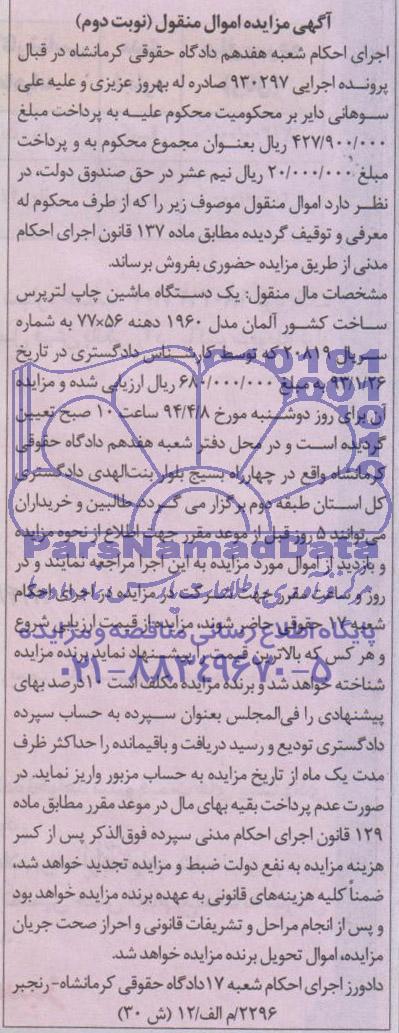 آگهی مزایده اموال منقول (نوبت دوم)
اجرای احکام شعبه هفدهم دادگاه حقوقی کرمانشاه در قبال
پرونده اجرایی ۹۳۰۲۹۷ صادره له بهروز عزیزی و علیه علی
سوهانی دایر بر محکومیت محکوم علیه به پرداخت مبلغ
۴۲۷/۹۰۰/۰۰۰ ریال بعنوان مجموع محکوم به و پرداخت
مبلغ ۲۰/۰۰۰/۰۰۰ ریال نیم عشر در حق صندوق دولت، در
نظر دارد اموال منقول موصوف زیر را که از طرف محکوم له
معرفی و توقیف گردیده مطابق ماده ۱۳۷ قانون اجرای احکام
مدنی از طریق مزایده حضوری بفروش برساند.
مشخصات مال منقول: یک دستگاه ماشین چاپ لترپرس
ساخت کشور آلمان مدل ۱۹۶۰ دهنه ۵۶×۷۷ به شماره
سریال ۲۰۸۱۹ که توسط کارشناس دادگستری در تاریخ
۹۳/۱/۲۶ به مبلغ ۶۸۰/۰۰۰/۰۰۰ ریال ارزیابی شده و مزایده
آن برای روز دوشنبه مورخ ۹۴/۴/۸ ساعت ۱۰ صبح تعیین
گردیده است و در محل دفتر شعبه هفدهم دادگاه حقوقی
کرمانشاه واقع در چهارراه بسیج بلوار بنت‌الهدی دادگستری
کل استان طبقه دوم برگزار می گردد. طالبین و خریداران
می‌توانند ۵ روز قبل از موعد مقرر جهت اطلاع از نحوه مزایده
ParsNamadData
و بازدید از اموال مورد مزایده به این اجرا مراجعه نمایند و در
روز و ساعت مقرر جهت شرکت در مزایده در اجرای احکام
شعبه ۱۷ حقوقی حاضر شوند، مزایده از قیمت ارزیابی شروع
پایگاه اطلاع رسانی مناقصه و مزایده
و هر کس که بالاترین قیمت را پیشنهاد نماید برنده مزایده
۰۲۱-۸۸۳۴۹۶۷۰-۵
شناخته خواهد شد و برنده مزایده مکلف است ۱۰درصد بهای
پیشنهادی را فی‌المجلس بعنوان سپرده به حساب سپرده
دادگستری تودیع و رسید دریافت و باقیمانده را حداکثر ظرف
مدت یک ماه از تاریخ مزایده به حساب مزبور واریز نماید. در
صورت عدم پرداخت بقیه بهای مال در موعد مقرر مطابق ماده
۱۲۹ قانون اجرای احکام مدنی سپرده فوق‌الذکر پس از کسر
هزینه مزایده به نفع دولت ضبط و مزایده تجدید خواهد شد،
ضمناً کلیه هزینه‌های قانونی به عهده برنده مزایده خواهد بود
و پس از انجام مراحل و تشریفات قانونی و احراز صحت جریان
مزایده، اموال تحویل برنده مزایده خواهد شد.
دادورز اجرای احکام شعبه ۱۷دادگاه حقوقی کرمانشاه- رنجبر
۲۲۹۶/م الف/۱۲ (ش ۳۰)